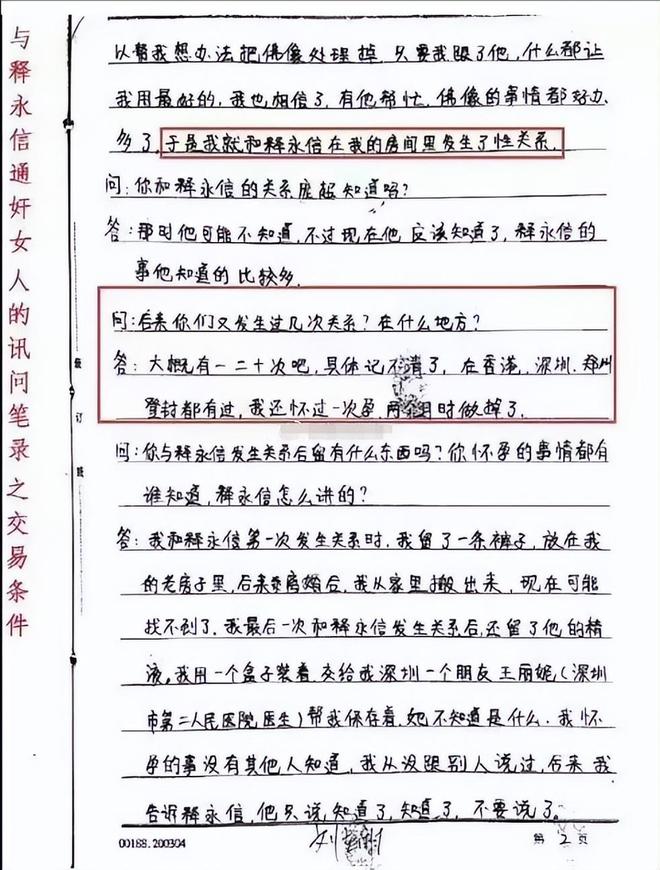 与释永信通奸女人的讯问笔录之交易条件
以帮我想办法把佛像处理掉.只要我跟了他,什么都让
我用最好的,我也相信了,有他帮忙.佛像的事情都好办
多了.于是我就和释永信在我的房间里发生了性关系.
问:你和释永信的关系 知道吗?
答:那时他可能不知道,不过现在他应该知道了,释永信的
事他知道的比较多.
问:后来你们又发生过几次关系?在什么地方?
答:大概有一二十次吧,具体记不清了,在香港.深圳.郑州
登封都有过,我还怀过一次孕,两个月时做掉了.
问:你与释永信发生关系后留有什么东西吗?你怀孕的事情都有
谁知道,释永信怎么讲的?
答:我和释永信第一次发生关系时,我留了一条裤子,放在我
的老房子里,后来 离婚后,我从家里搬出来,现在可能
找不到了.我最后一次和释永信发生关系后,还留了他的精
液。我用一个盒子装着.交给我深圳一个朋友王丽妮(深圳
市第二人民医院医生)帮我保存着.她不知道是什么.我怀
孕的事没有其他人知道,我从没跟别人说过,后来我
告诉释永信,他只说知道了,知道了,不要说了。
装
订
线
00168.200304
第 2 页